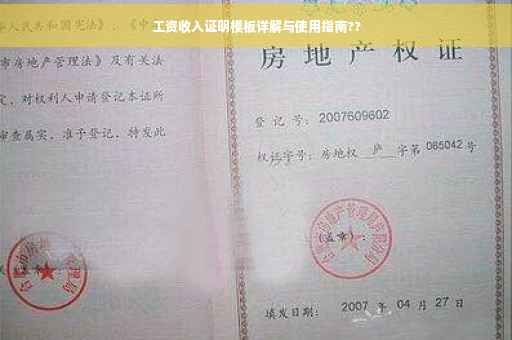 工资收入证明模板详解与使用指南??
人民共和国宪法》、《中
市房地产管理法》及有关法
定，对权利人申请登记本证所
审查属实，准予登记，特发此
房地产权证
登记号：2007609602
权证字号：房地权 庐 字第 065042 号
(盖章)：
填发日期： 2007 年 04 月 27 日